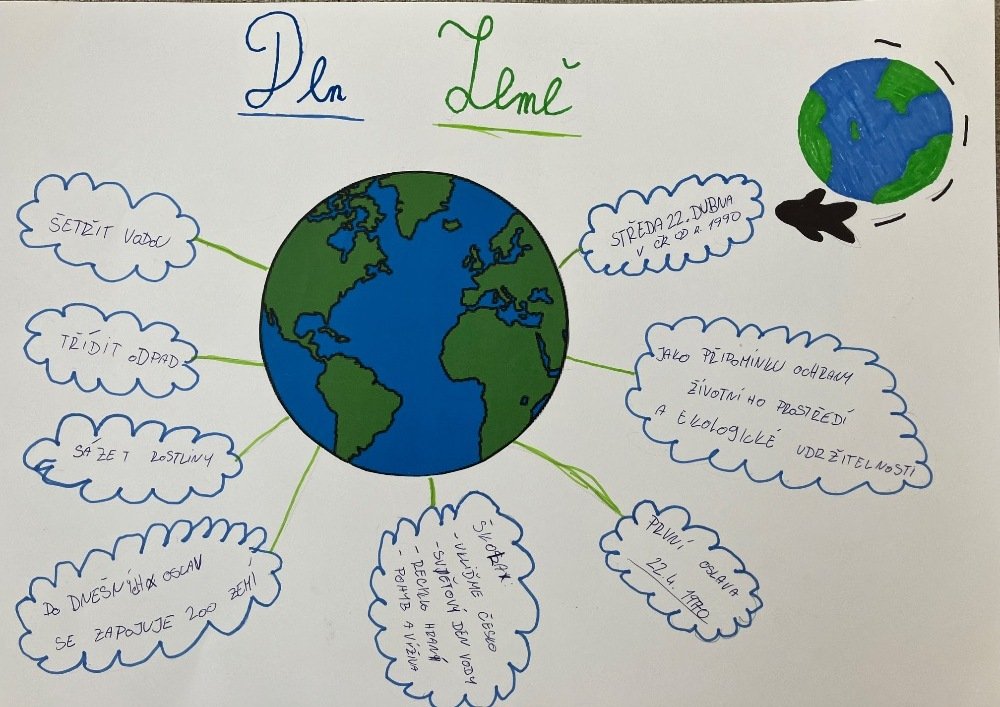 Den Země
ŠETŘIT VODU
TŘÍDIT ODPAD
SÁZET ROSTLINY
DO DNEŠNÍCH OSLAV
SE ZAPOJUJE 200 ZEMÍ
STŘEDA 22. DUBNA
V ČR OD R. 1990
JAKO PŘIPOMÍNKU OCHRANY
ŽIVOTNÍHO PROSTŘEDÍ
A EKOLOGICKÉ UDRŽITELNOSTI
PRVNÍ OSLAVA
22.4. 1970
- UKLIĎME ČESKO
- SVĚTOVÝ DEN VODY
- RECYKLO HRANÍ
- POHYB A VÝŽIVA